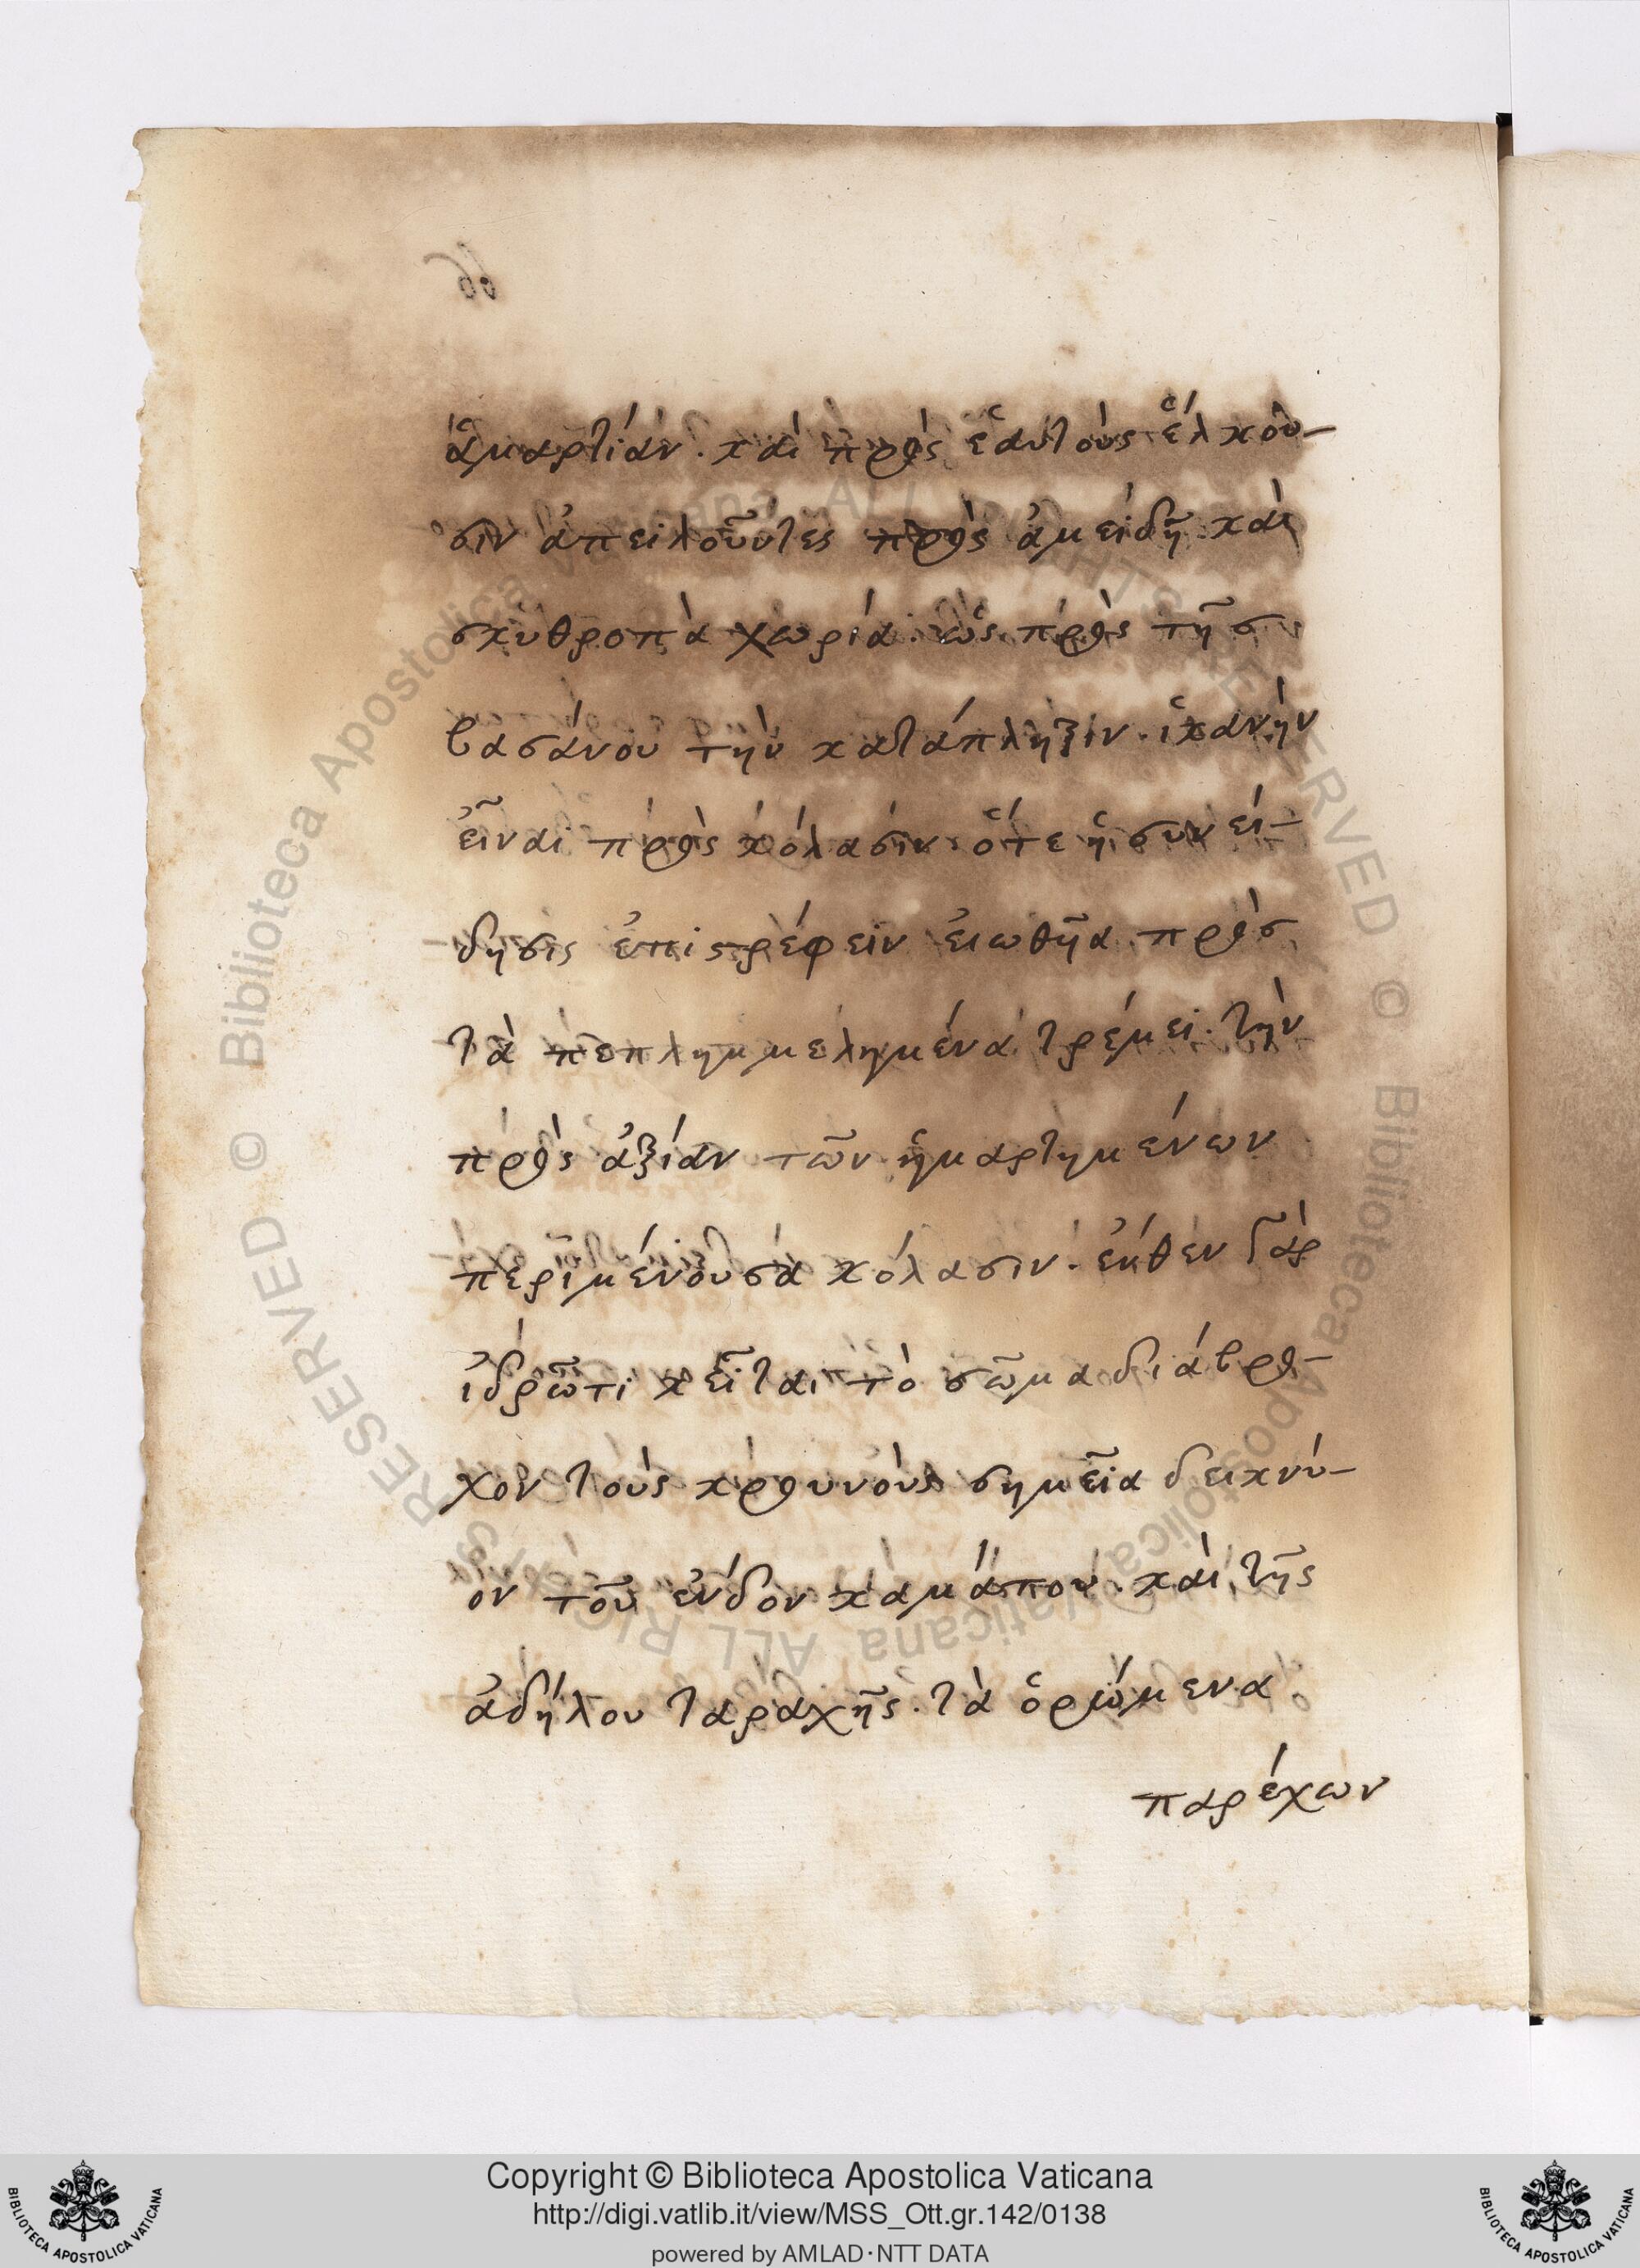 66
ἁμαρτίαν. καὶ πρὸς ἑαυτοὺς ἕλκου-
σιν ἀπειλοῦντες πρὸς ἀμειδῆ καὶ
σκυθροπὰ χωρία. ὡς πρὸς τῆσ
βασάνου τὴν κατάπληξιν. ἱκανὴν
εἶναι πρὸς κόλασιν. ὅτε ἡ συνεί-
δησις ἐπιστρέφειν εἰωθῆα πρὸσ
τὰ πεπλημμελημένα τρέμει. τὴν
πρὸς ἀξίαν τῶν ἡμαρτημένων
περιμένουσα κόλασιν. ἔνθεν γὰρ
ἰδρῶτι κεῖται τὸ σῶμα διάβρο-
χον τοὺς κρουνοὺς σημεῖα δεικνύ-
ον τοῦ ἔνδον καμάπου. καὶ τῆς
ἀδήλου ταραχῆς. τὰ ὁρώμενα
παρέχων
© Biblioteca Apostolica Vaticana ALL RIGHTS RESERVED
© Biblioteca Apostolica Vaticana ALL RIGHTS RESERVED
Copyright © Biblioteca Apostolica Vaticana
http://digi.vatlib.it/view/MSS_Ott.gr.142/0138
powered by AMLAD·NTT DATA
BIBLIOTECA APOSTOLICA VATICANA
BIBLIOTECA APOSTOLICA VATICANA